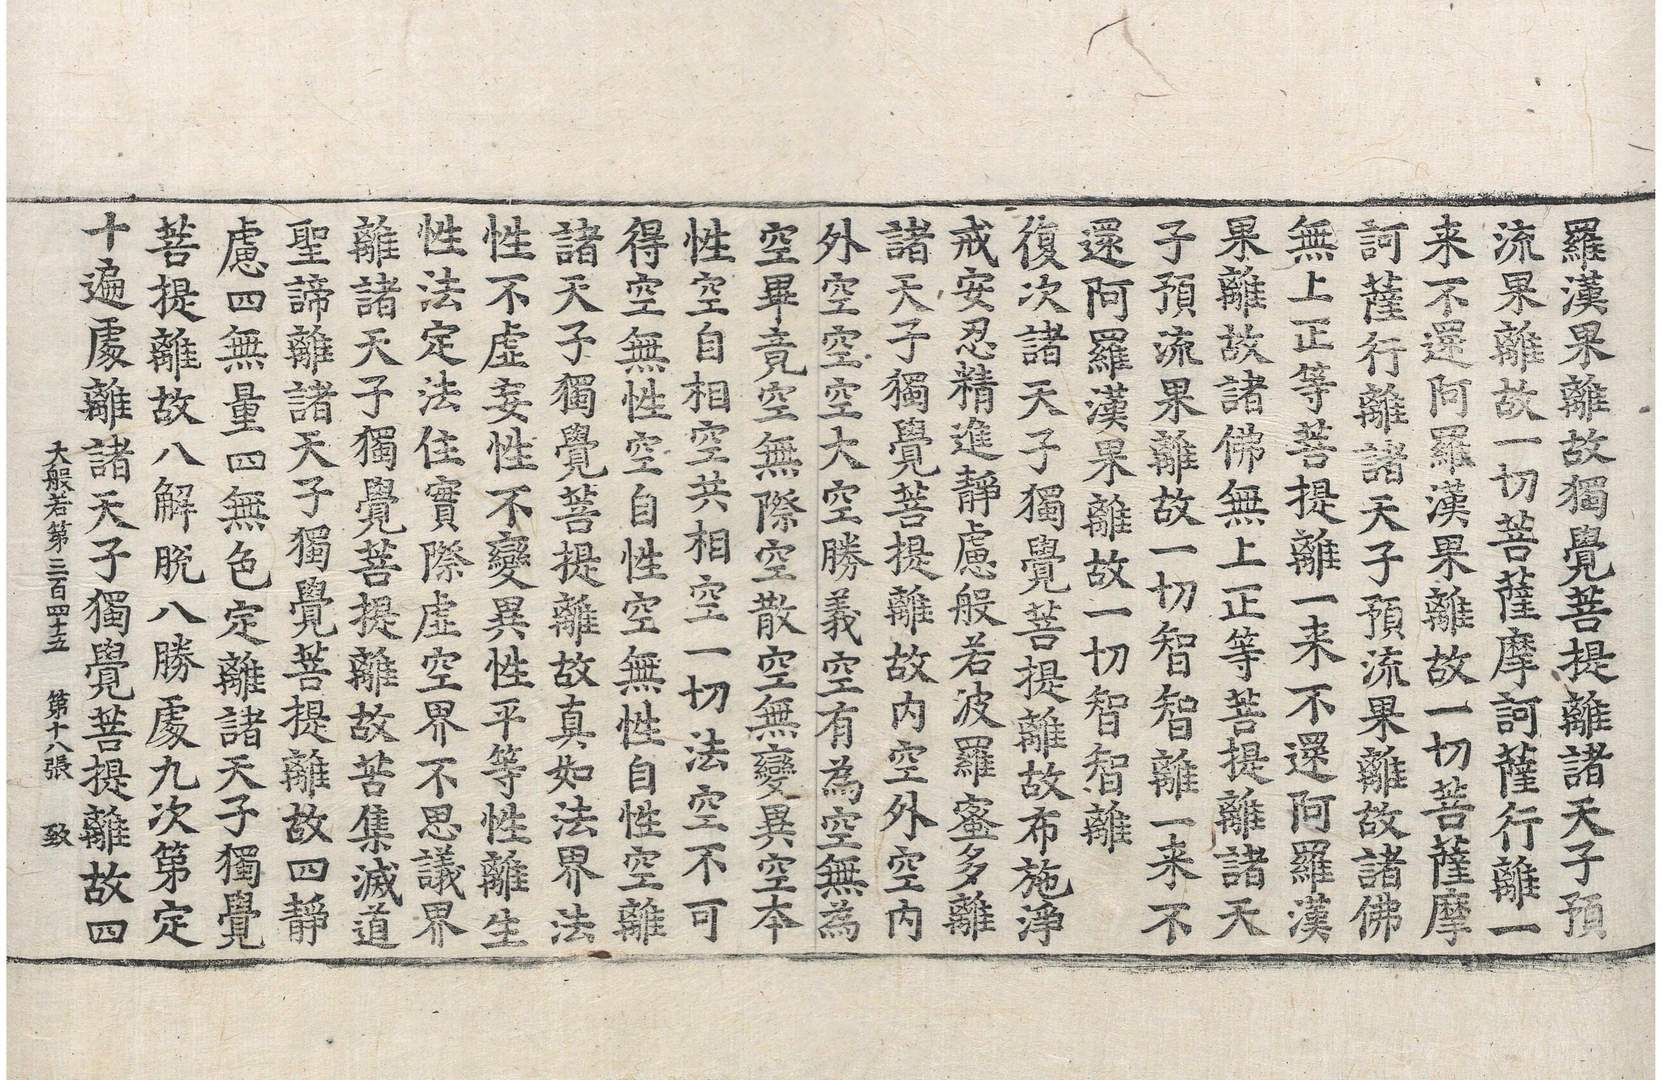 羅漢果離故獨覺菩提離諸天子預
流果離故一切菩薩摩訶薩行離一
来不還阿羅漢果離故一切菩薩摩
訶薩行離諸天子預流果離故諸佛
無上正等菩提離一来不還阿羅漢
果離故諸佛無上正等菩提離諸天
子預流果離故一切智智離一来不
還阿羅漢果離故一切智智離
復次諸天子獨覺菩提離故布施淨
戒安忍精進靜慮般若波羅蜜多離
諸天子獨覺菩提離故内空外空内
外空空空大空勝義空有為空無為
空畢竟空無際空散空無變異空本
性空自相空共相空一切法空不可
得空無性空自性空無性自性空離
諸天子獨覺菩提離故真如法界法
性不虛妄性不變異性平等性離生
性法定法住實際虛空界不思議界
離諸天子獨覺菩提離故苦集滅道
聖諦離諸天子獨覺菩提離故四靜
慮四無量四無色定離諸天子獨覺
菩提離故八解脫八勝處九次第定
十遍處離諸天子獨覺菩提離故四
大般若第三百四十五 第十八張 致